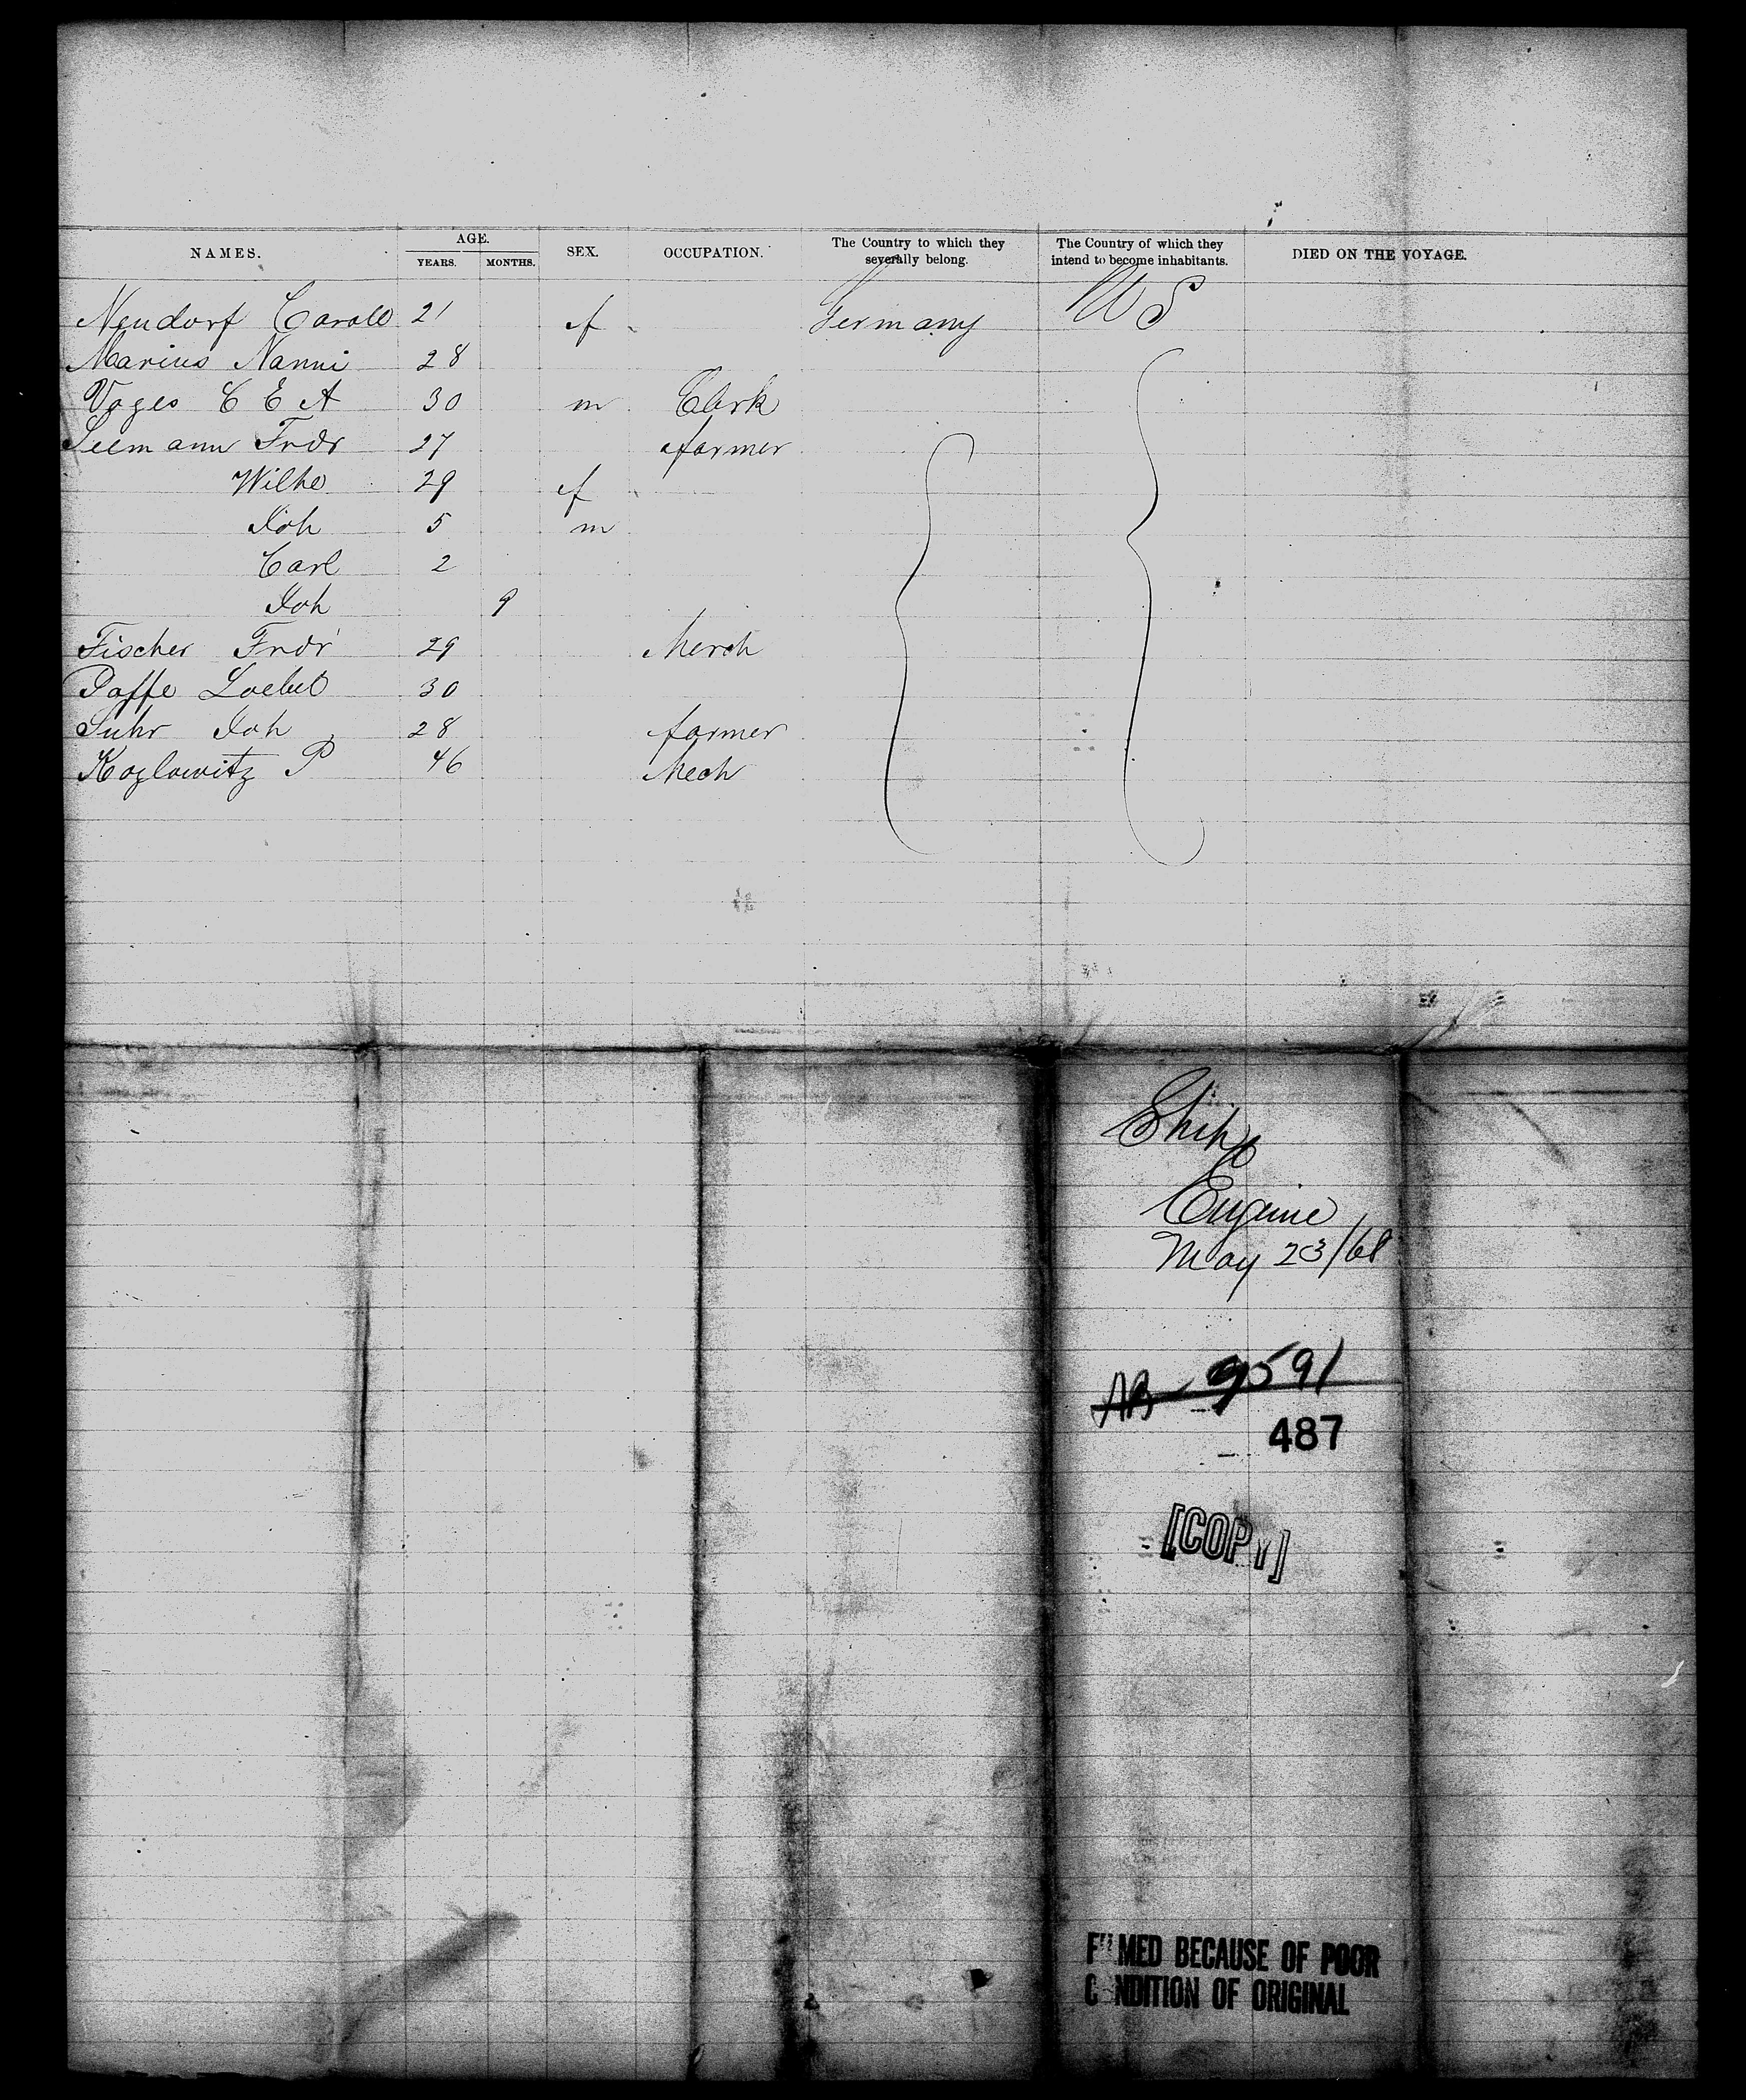 NAMES. AGE. YEARS. MONTHS. SEX. OCCUPATION. The Country to which they severally belong. The Country of which they intend to become inhabitants. DIED ON THE VOYAGE.
Neudorf 21 f Germany US
Marius Nanni 28
Voges C E A 30 m Clerk
Seemann Frdr 27 farmer
Wilhe 29 f
Joh 5 m
Carl 2
Joh 9
Fischer Frdr 29 Merch
30
Suhr Joh 28 farmer
Kozlowitz P 46 Mech
Ship
Eugenie
May 23/68
AB 9591
487
[COPY]
FILMED BECAUSE OF POOR
CONDITION OF ORIGINAL